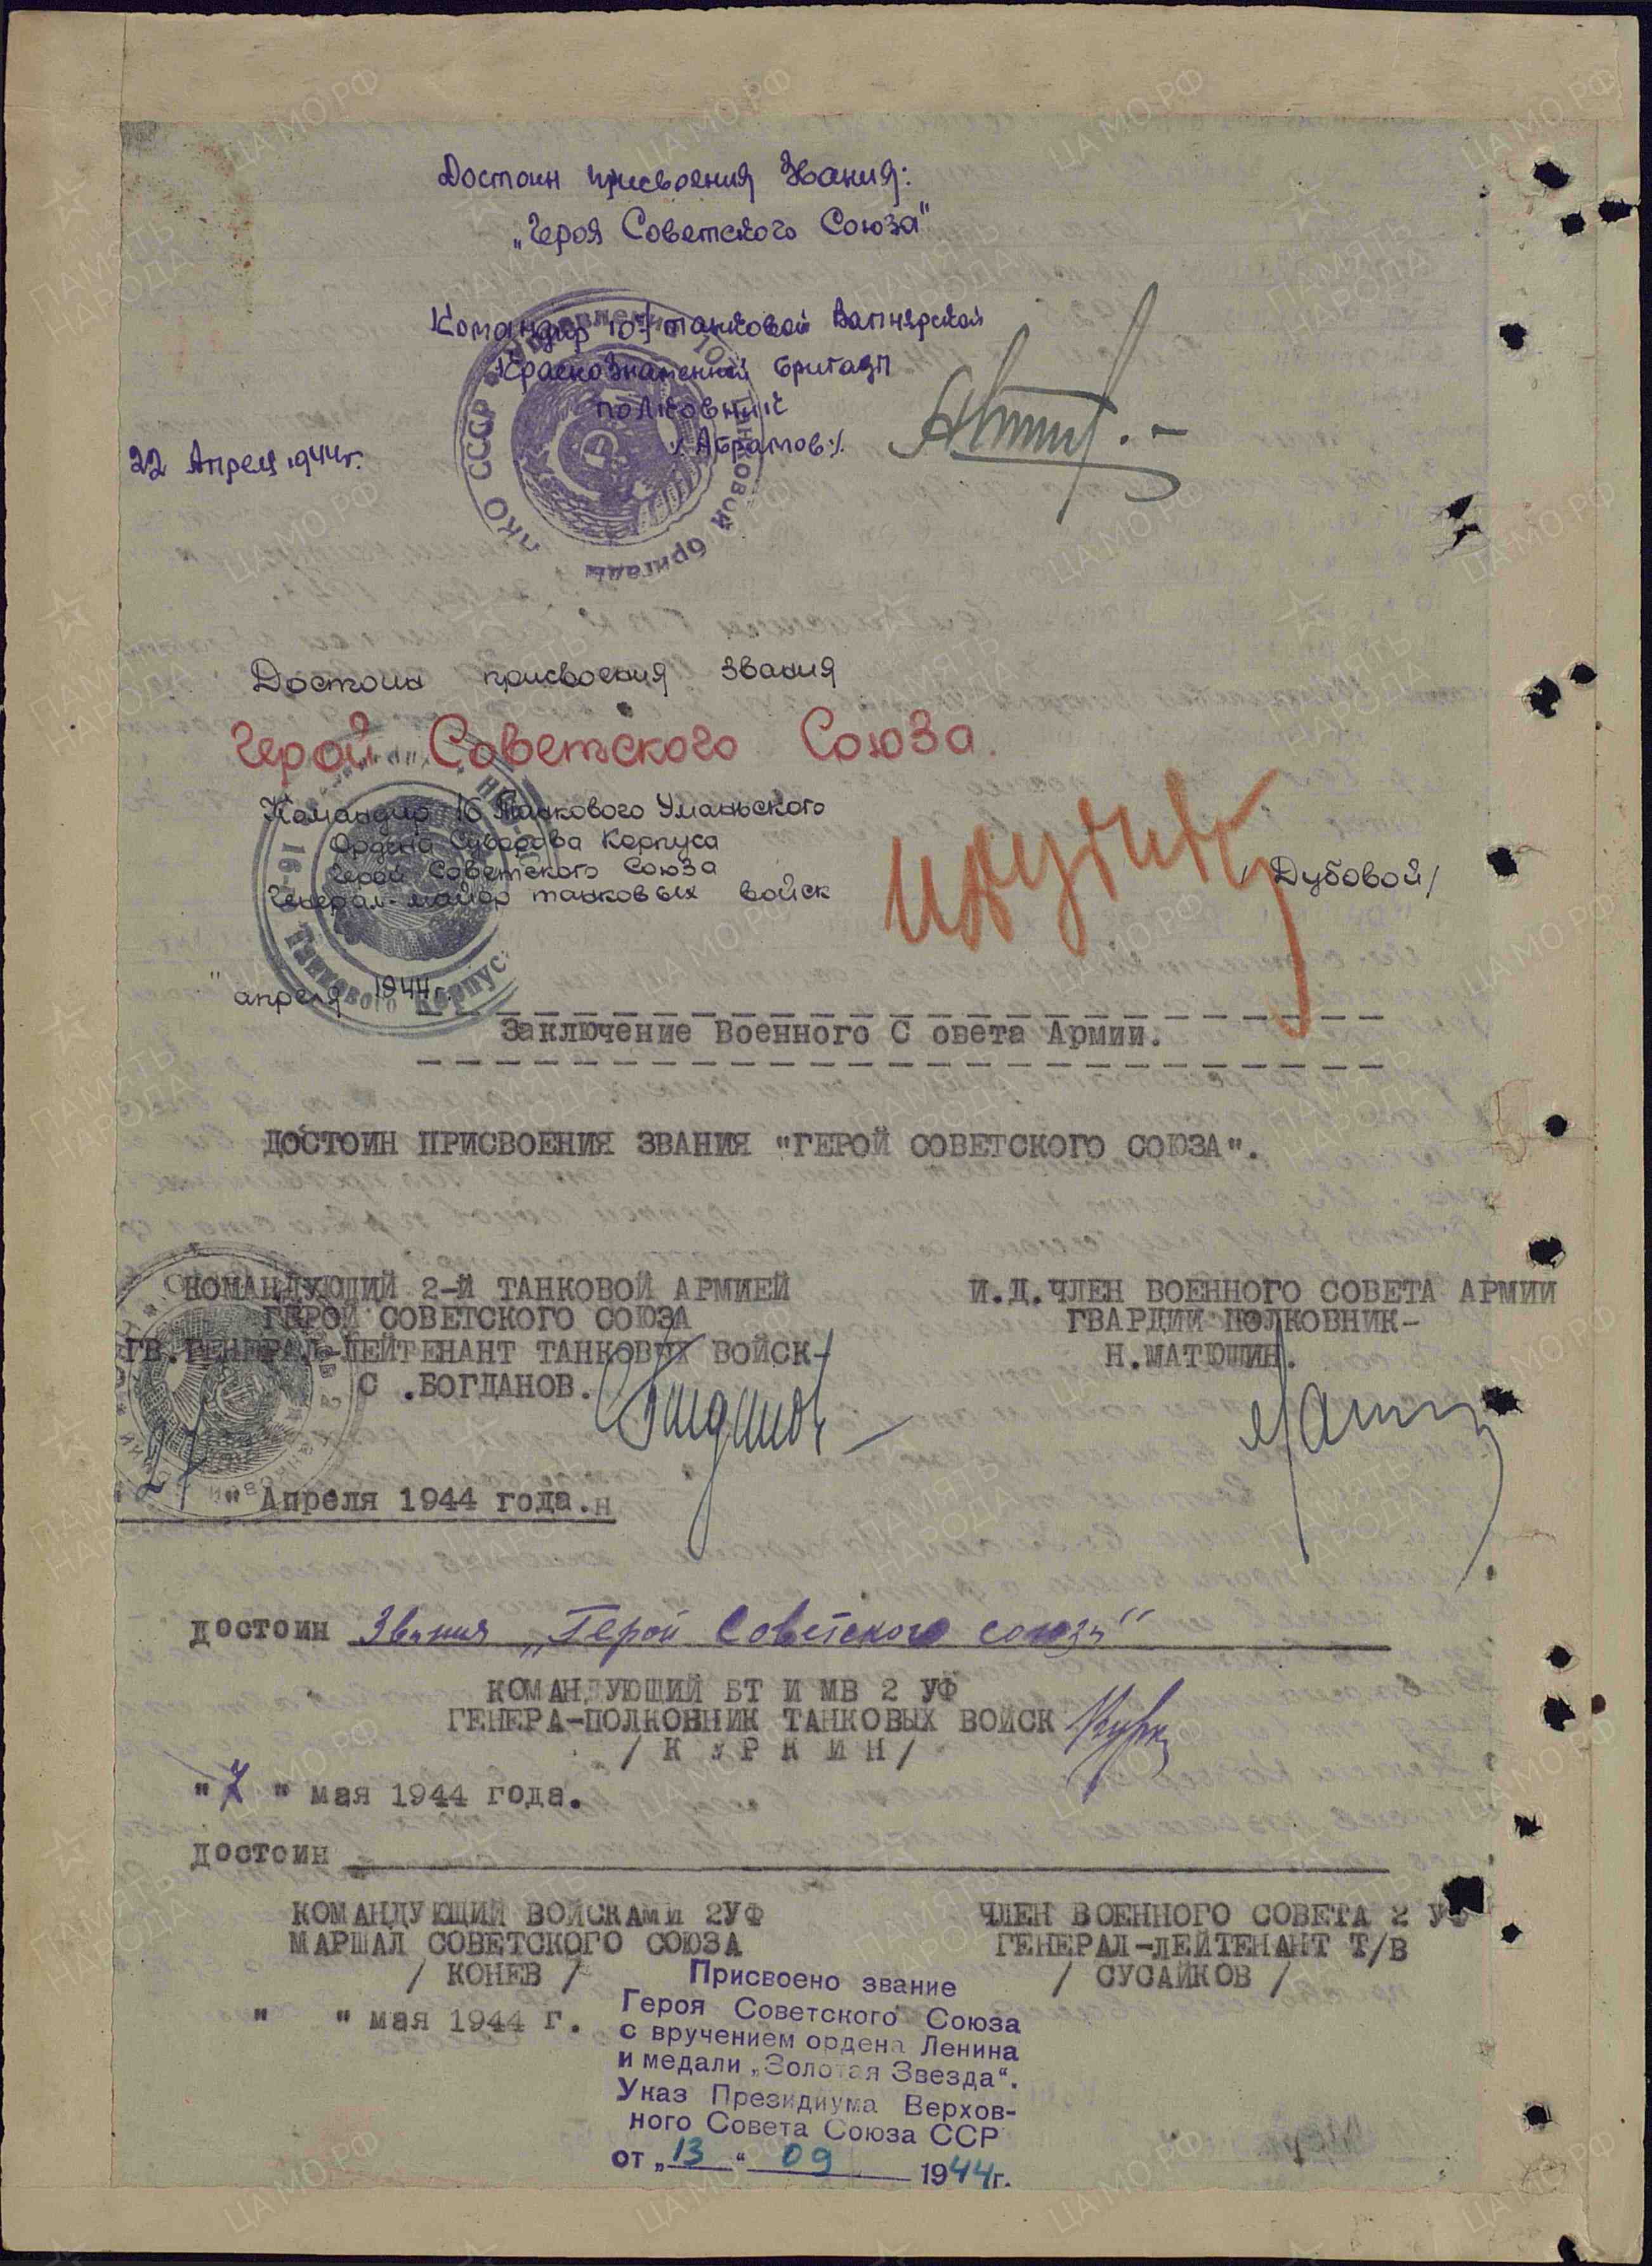 Достоин присвоения Звания:
„Героя Советского Союза"
Командир 107 танковой Вапнярской
Краснознаменной бригады
полковник
/Абрамов/.
22 Апреля 1944г.
НКО СССР
Танковой бригады
Достоин присвоения звания
Герой Советского Союза.
Командир 16 Танкового Уманьского
Ордена Суворова Корпуса
Герой Советского Союза
Генерал-майор танковых войск
/Дубовой/
16-го Танкового Корпус
" апреля 1944г.
Заключение Военного С овета Армии.
ДОСТОИН ПРИСВОЕНИЯ ЗВАНИЯ "ГЕРОЙ СОВЕТСКОГО СОЮЗА".
КОМАНДУЮЩИЙ 2-Й ТАНКОВОЙ АРМИЕЙ
ГЕРОЙ СОВЕТСКОГО СОЮЗА
ГВ.ГЕНЕРАЛ-ЛЕЙТЕНАНТ ТАНКОВЫХ ВОЙСК-
С .БОГДАНОВ.
И.Д.ЧЛЕН ВОЕННОГО СОВЕТА АРМИИ
ГВАРДИИ ПОЛКОВНИК-
Н.МАТЮШИН.
"27" Апреля 1944 года.н
достоин Звания „Герой Советского союза"
КОМАНДУЮЩИЙ БТ И МВ 2 УФ
ГЕНЕРА-ПОЛКОВНИК ТАНКОВЫХ ВОЙСК
/ К У Р К И Н /
"7" мая 1944 года.
достоин
КОМАНДУЮЩИЙ ВОЙСКАМИ 2УФ
МАРШАЛ СОВЕТСКОГО СОЮЗА
/ КОНЕВ /
" " мая 1944 г.
ЧЛЕН ВОЕННОГО СОВЕТА 2 УФ
ГЕНЕРАЛ-ЛЕЙТЕНАНТ Т/В
/ СУСАЙКОВ /
Присвоено звание
Героя Советского Союза
с вручением ордена Ленина
и медали „Золотая Звезда".
Указ Президиума Верхов-
ного Совета Союза ССР
от „13" 09 1944г.
ПАМЯТЬ НАРОДА
ЦА МО РФ